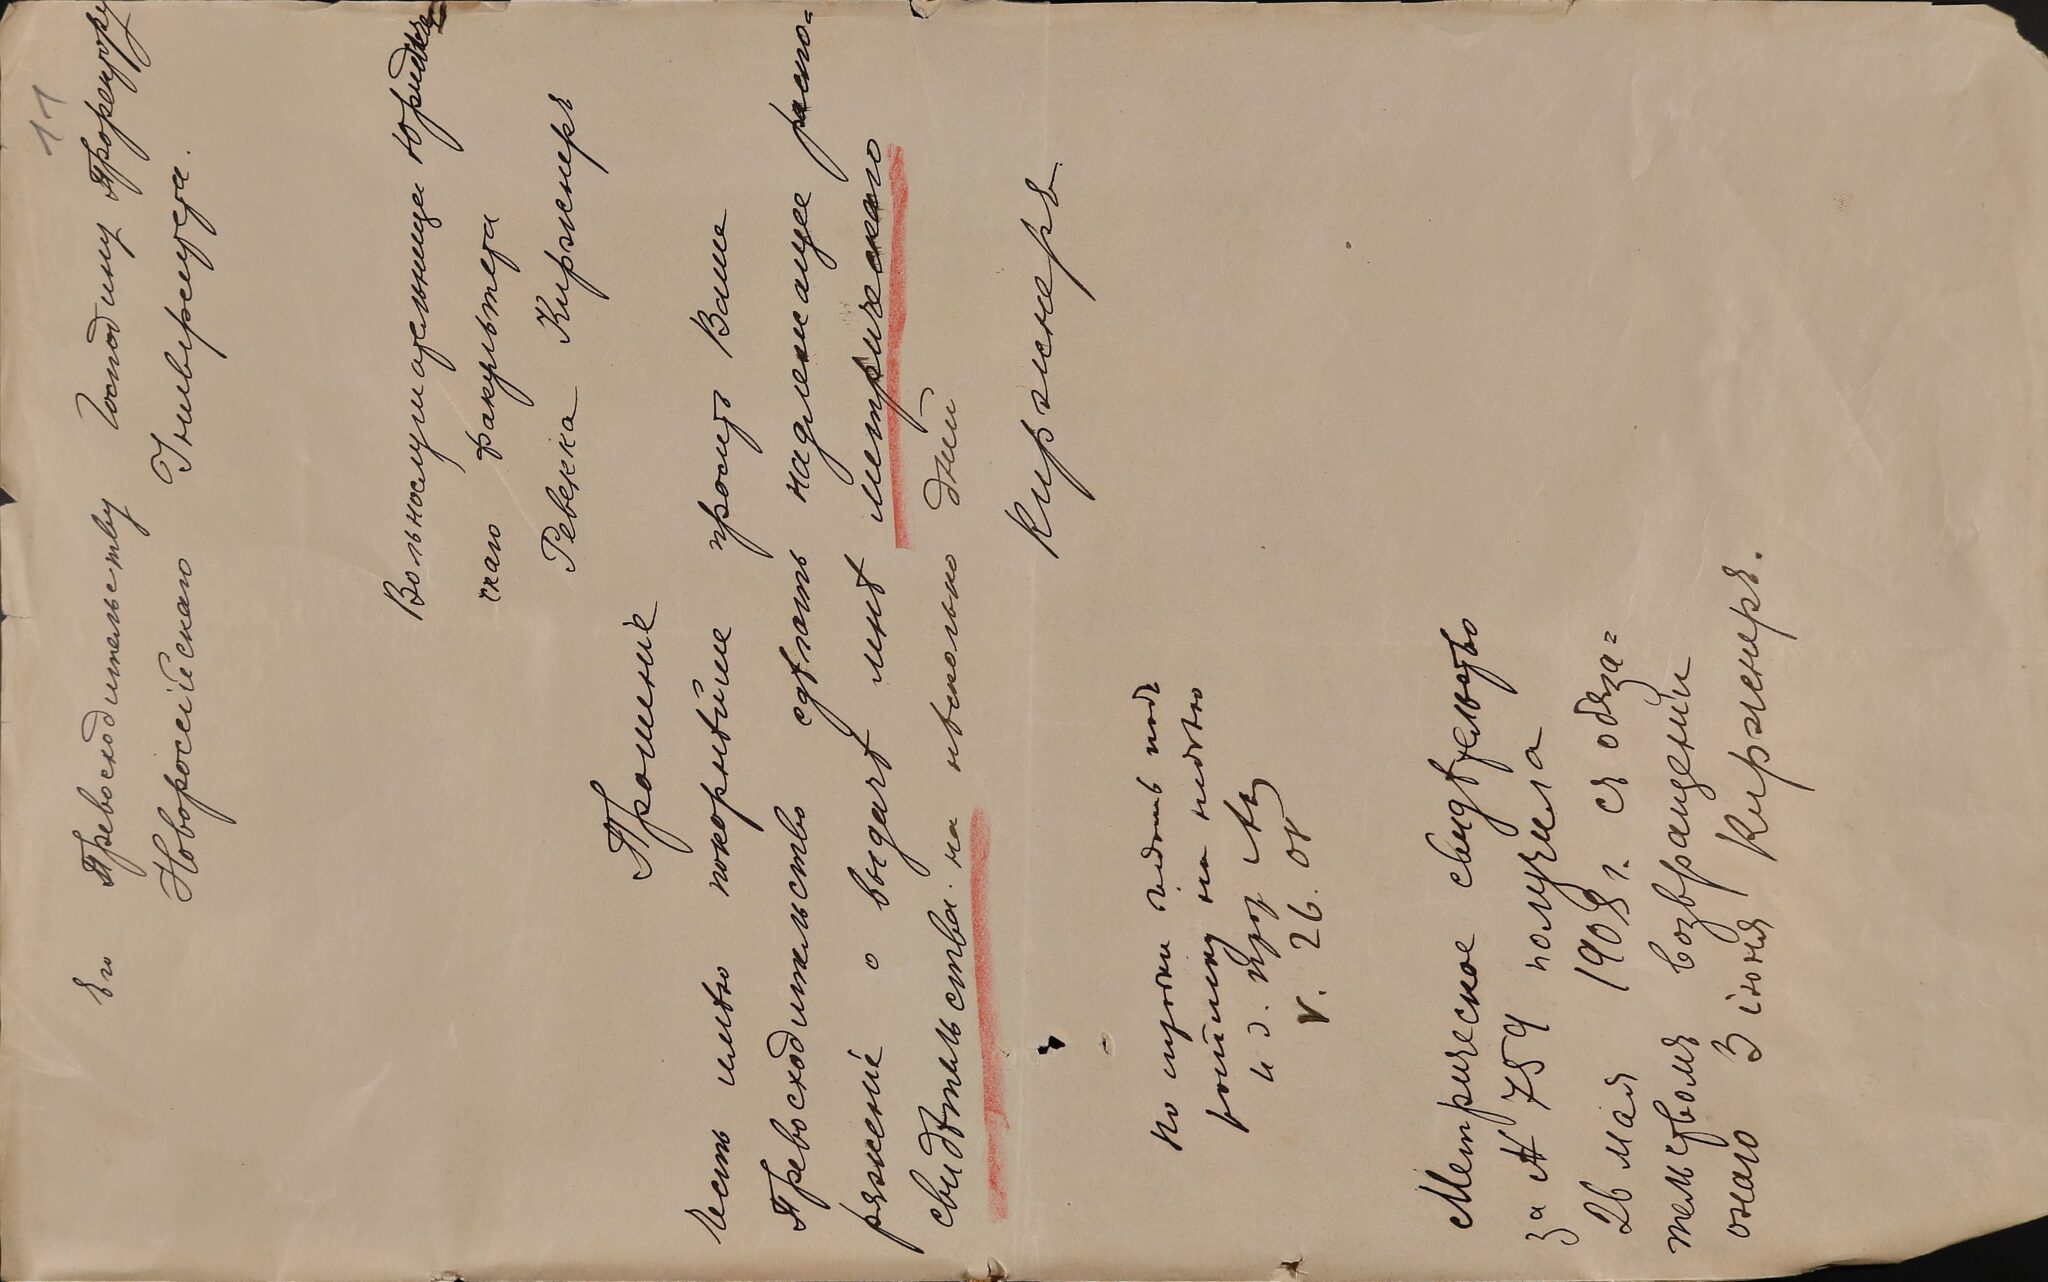 11
Его Превосходительству Господину Проректору
Новороссійскаго Университета.
Вольнослушательницы Юридиче
скаго факультета
Ревекка Киржнеръ
Прошеніе
Честь имѣю покорнѣйше просить Ваше
Превосходительство сдѣлать надлежащее распо=
ряженіе о выдачѣ мнѣ метрическаго
свидѣтельства на нѣсколько дней
Киржнеръ.
выдать подъ
росписку на недѣлю
и. д. Прор
V. 26. 08
Метрическое свидѣтельство
за № 759 получила
26 мая 1908 г. съ обяза=
тельствомъ возвращенія
онаго 3 іюня Киржнеръ.